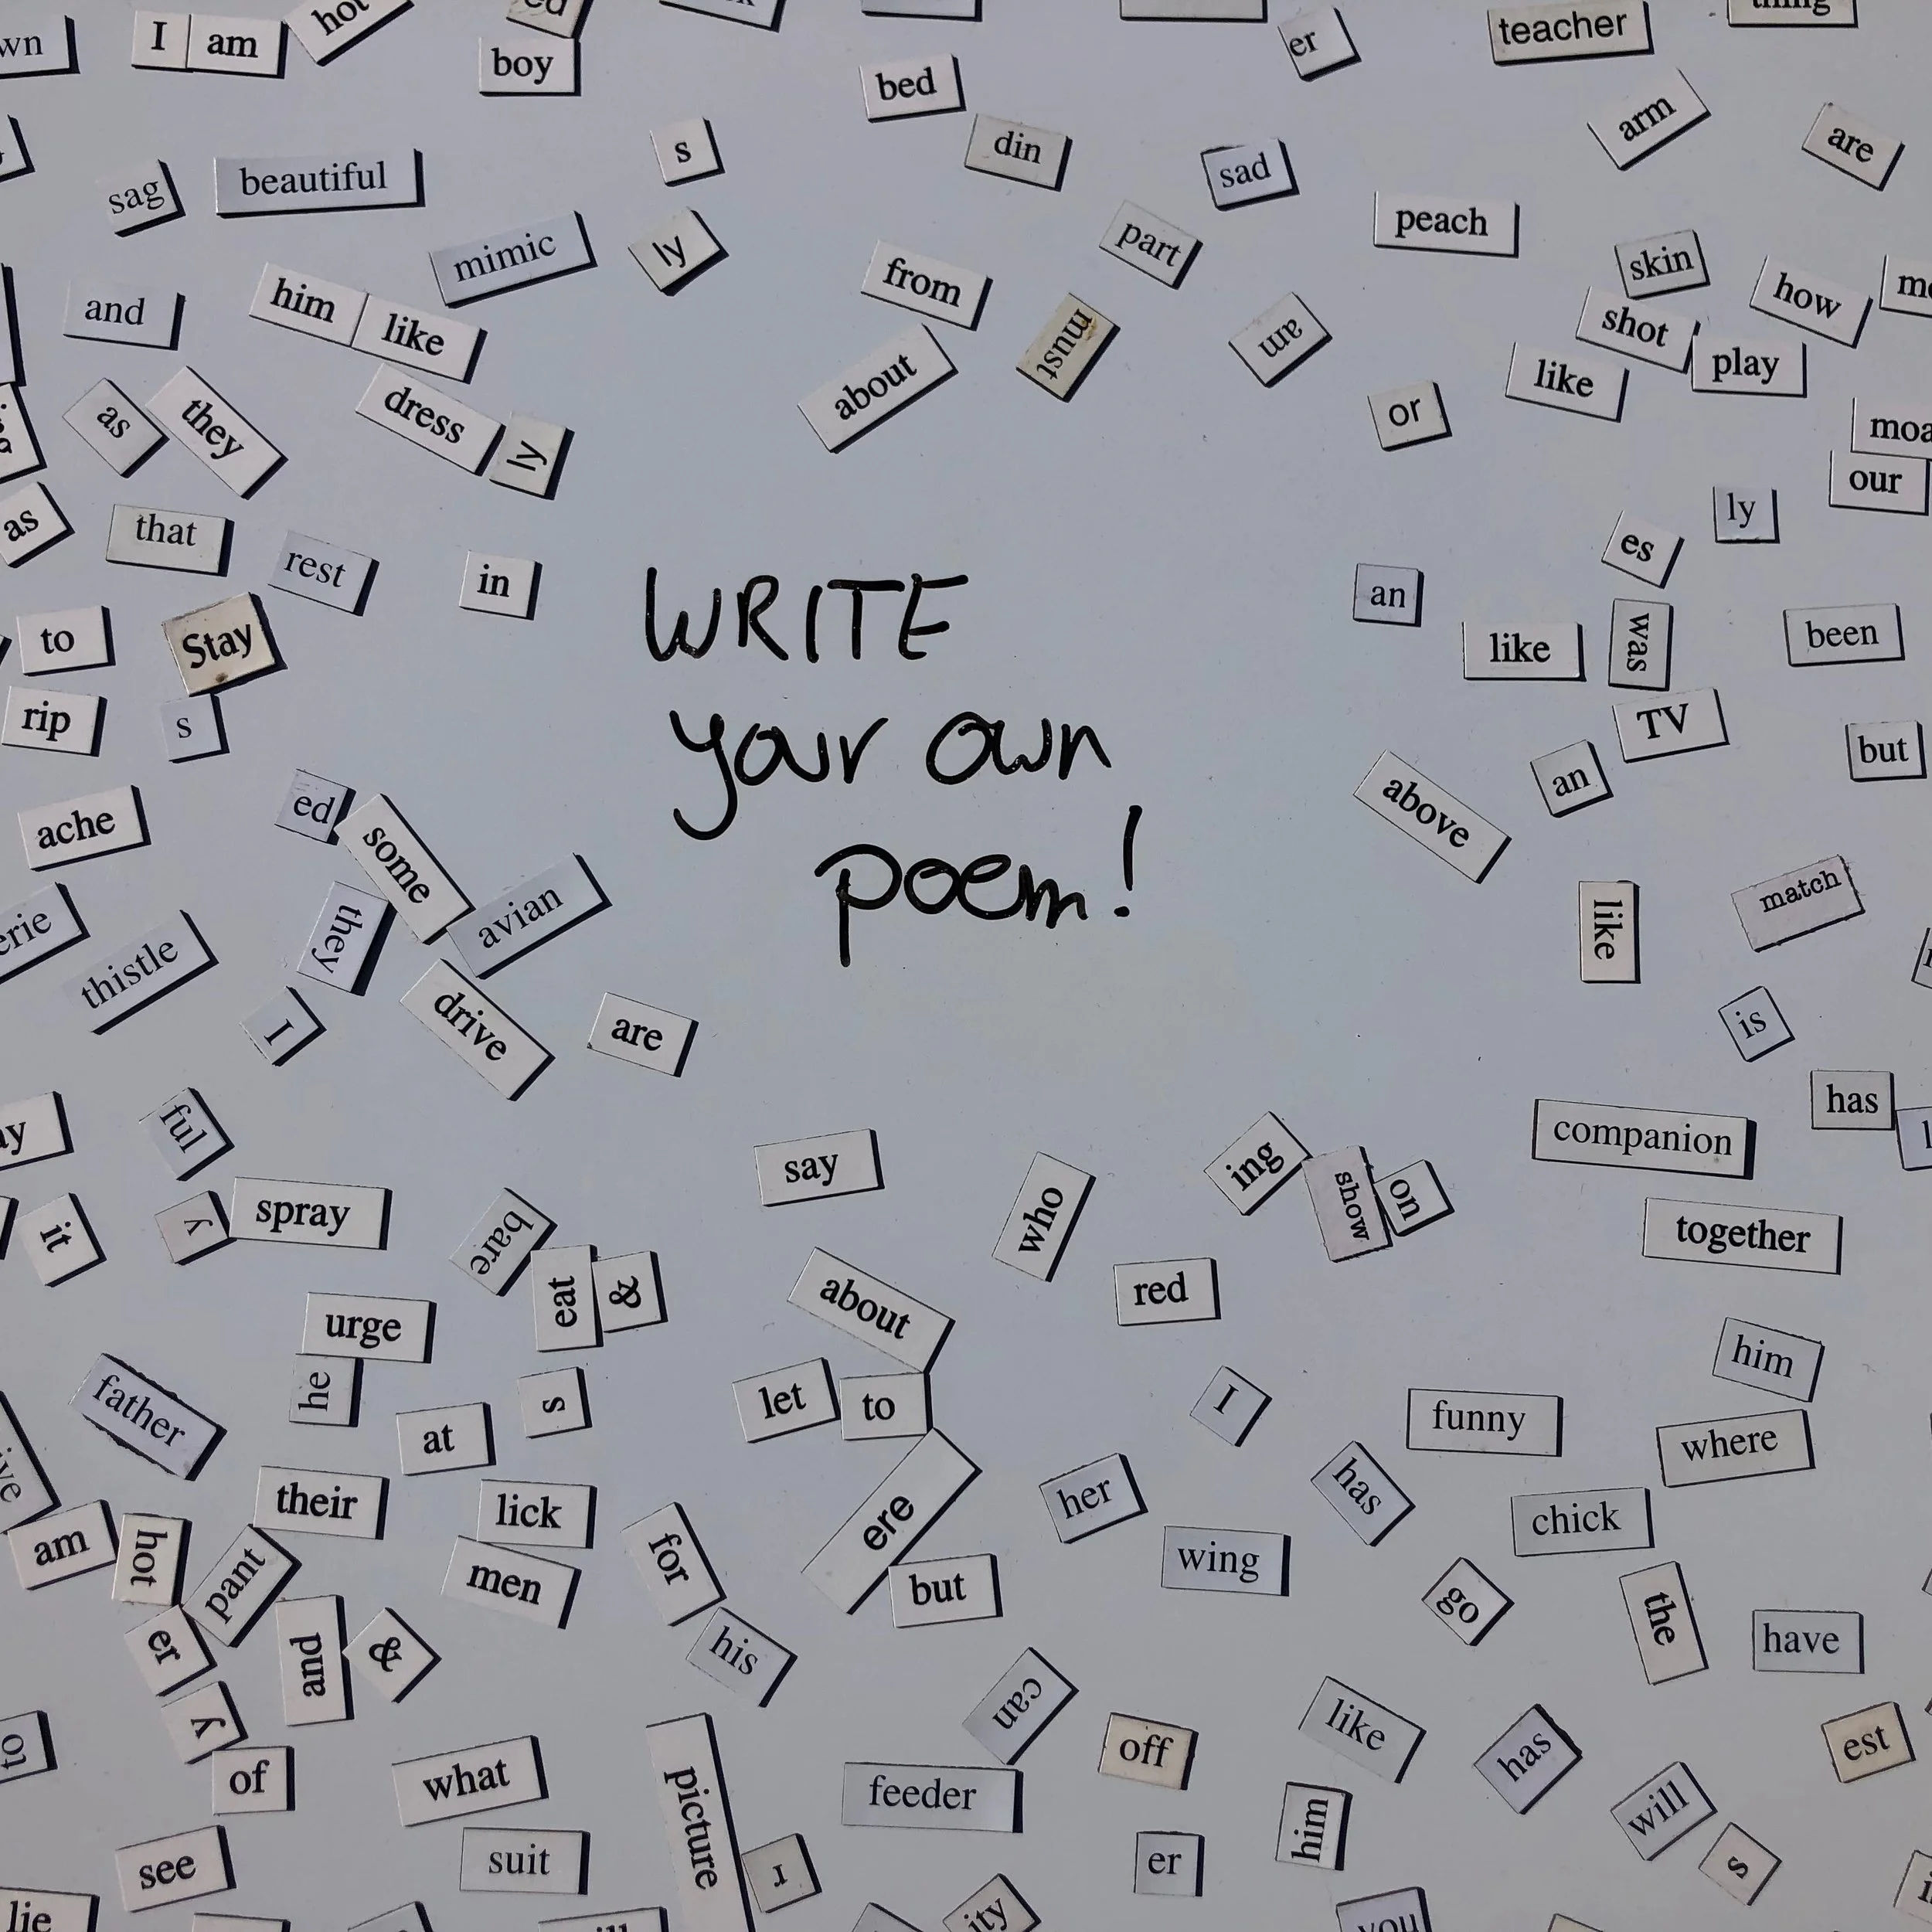 I am boy bed er teacher
sag beautiful s din sad arm are
mimic ly from part peach skin how
and him like must am shot play
as they dress ly about or like
as that rest in our ly es
to Stay WRITE an like was been
rip s your own TV but
ache ed some poem! above an match
thistle they avian like
I drive are is
ful say who ing show on companion has
it y spray bare eat & red together
urge about him
father he at s let to I funny where
their lick her has chick
am hot pant men for ere but wing go the have
er and & his
y can off like has est
of what picture feeder him will
see suit I er s
lie ity you